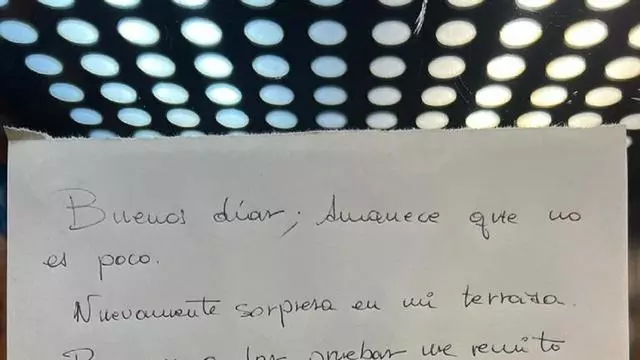 Buenos días; Amanece que no
es poco.
Nuevamente sorpresa en mi terraza.
a las pruebas me remito